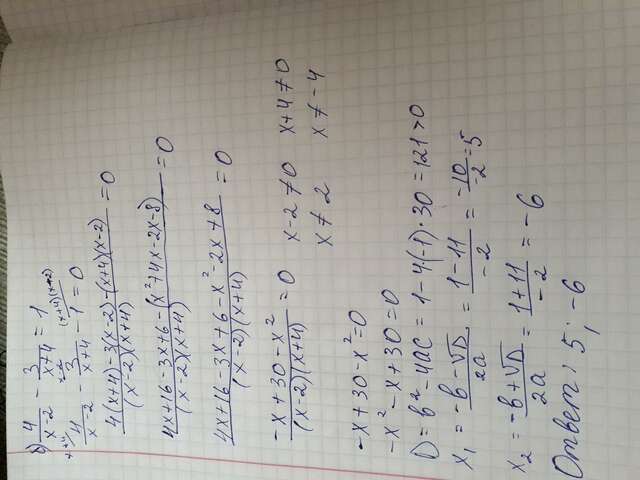 б) 4/(x-2) - 3/(x+4) = 1
4/(x-2) - 3/(x+4) - 1 = 0
(4(x+4)-3(x-2)-(x+4)(x-2))/((x-2)(x+4)) = 0
(4x+16-3x+6-(x²+4x-2x-8))/((x-2)(x+4)) = 0
(4x+16-3x+6-x²-2x+8)/((x-2)(x+4)) = 0
(-x+30-x²)/((x-2)(x+4)) = 0 x-2≠0 x+4≠0
x≠2 x≠-4
-x+30-x²=0
-x²-x+30=0
D=b²-4ac=1-4·(-1)·30=121>0
x₁ = (-b-√D)/2a = (1-11)/-2 = -10/-2 = 5
x₂ = (-b+√D)/2a = (1+11)/-2 = -6
Ответ: 5; -6